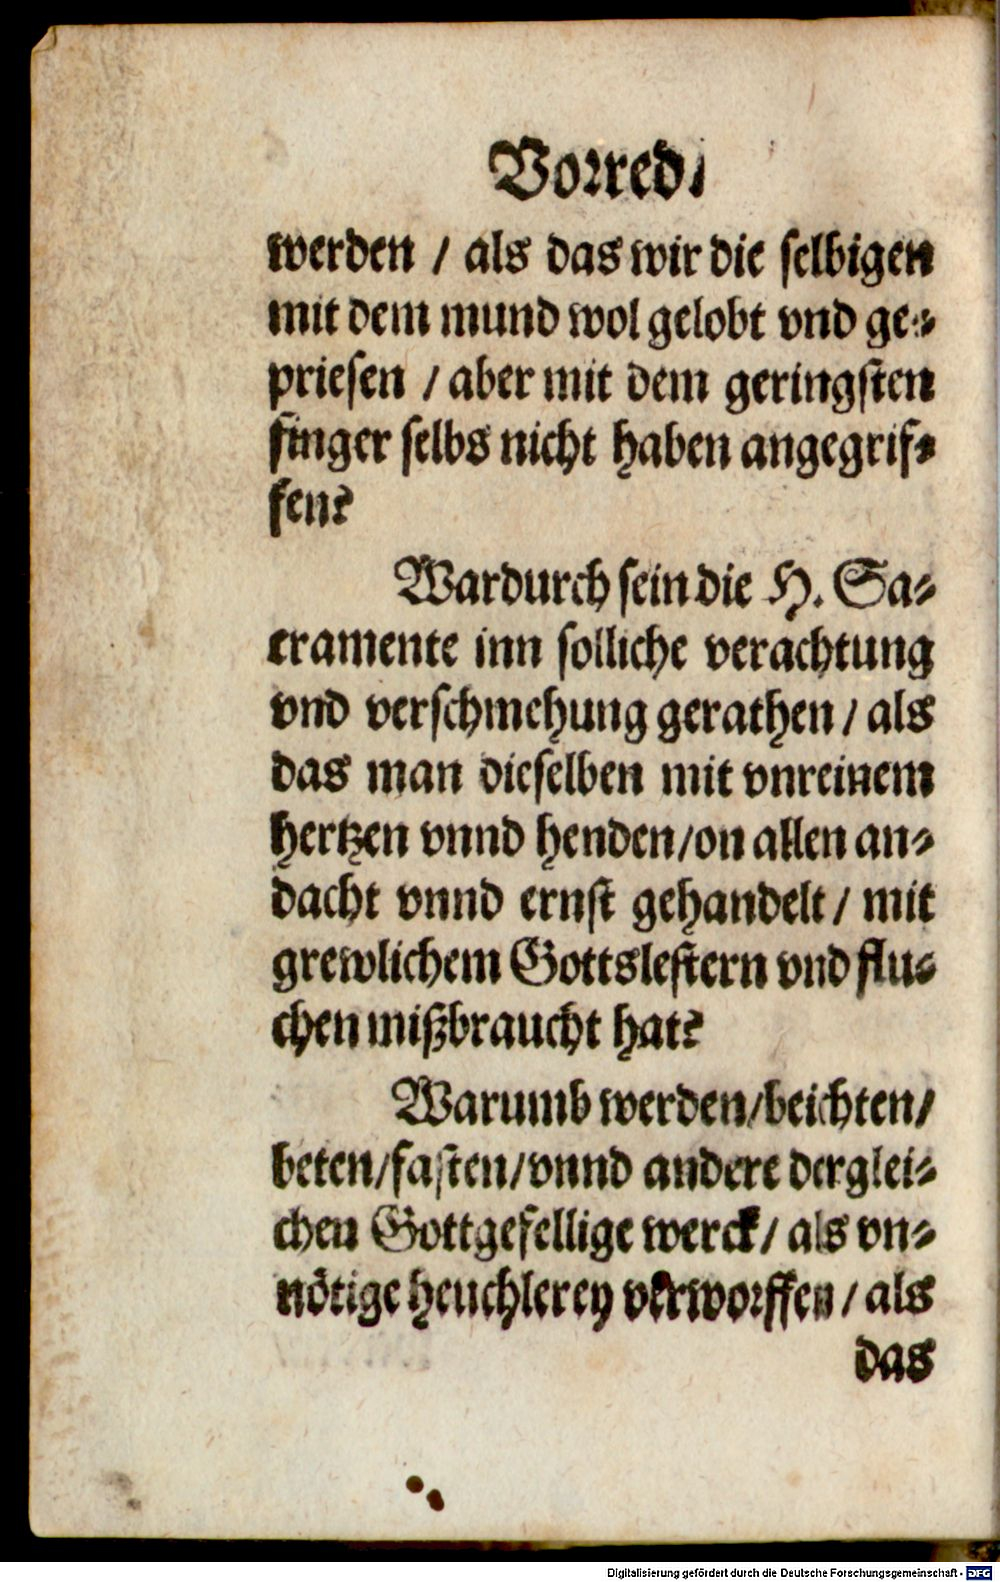 Vorred.
werden / als das wir die selbigen
mit dem mund wol gelobt vnd ge-
priesen / aber mit dem geringsten
finger selbs nicht haben angegrif-
fen?
Wardurch sein die H. Sa-
cramente inn solliche verachtung
vnd verschmehung gerathen / als
das man dieselben mit vnreinem
hertzen vnnd henden / on allen an-
dacht vnnd ernst gehandelt / mit
grewlichem Gottslestern vnd flu-
chen mißbraucht hat?
Warumb werden / beichten /
beten / fasten / vnnd andere derglei-
chen Gottgefellige werck / als vn-
nötige heuchlerey verworffen / als
das
Digitalisierung gefördert durch die Deutsche Forschungsgemeinschaft - DFG